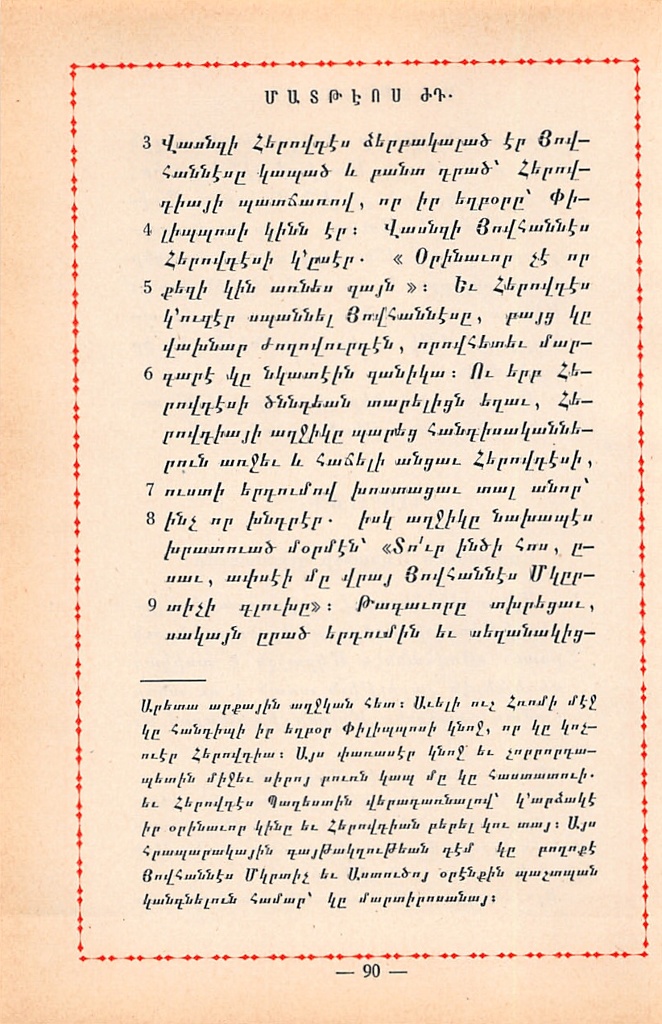 ՄԱՏԹԷՈՍ ԺԴ.
3 Վասնզի Հերովդէս ձերբակալած էր Յով–
հաննէսը կապած և բանտ դրած՝ Հերով–
դիայի պատճառով, որ իր եղբօրը՝ Փի–
4 լիպպոսի կինն էր։ Վասնզի Յովհաննէս
Հերովդէսի կ՚ըսէր. « Օրինաւոր չէ որ
5 քեզի կին առնես զայն »։ Եւ Հերովդէս
կ՚ուզէր սպաննել Յովհաննէսը, բայց կը
վախնար ժողովուրդէն, որովհետեւ մար–
6 գարէ կը նկատէին զանիկա։ Ու երբ Հե–
րովդէսի ծննդեան տարելիցն եղաւ, Հե–
րովդիայի աղջիկը պարեց հանդիսականնե–
րուն առջեւ և հաճելի անցաւ Հերովդէսի,
7 ուստի երդումով խոստացաւ տալ անոր՝
8 ինչ որ խնդրէր. իսկ աղջիկը նախապէս
խրատուած մօրմէն՝ «Տո՛ւր ինծի հոս, ը–
սաւ, ափսէի մը վրայ Յովհաննէս Մկըր–
9 տիչի գլուխը»։ Թագաւորը տխրեցաւ,
սակայն ըրած երդումին եւ սեղանակից–
Արետա արքային աղջկան հետ։ Աւելի ուշ Հռոմի մէջ
կը հանդիպի իր եղբօր Փիլիպպոսի կնոջ, որ կը կոչ–
ուէր Հերովդիա։ Այս փառասէր կնոջ եւ չորրորդա–
պետին միջեւ սիրոյ բուռն կապ մը կը հաստատուի.
եւ Հերովդէս Պաղեստին վերադառնալով՝ կ՚արձակէ
իր օրինաւոր կինը եւ Հերովդիան բերել կու տայ։ Այս
հրապարակային գայթակղութեան դէմ կը բողոքէ
Յովհաննէս Մկրտիչ եւ Աստուծոյ օրէնքին պաշտպան
կանգնելուն համար՝ կը մարտիրոսանայ։
— 90 —